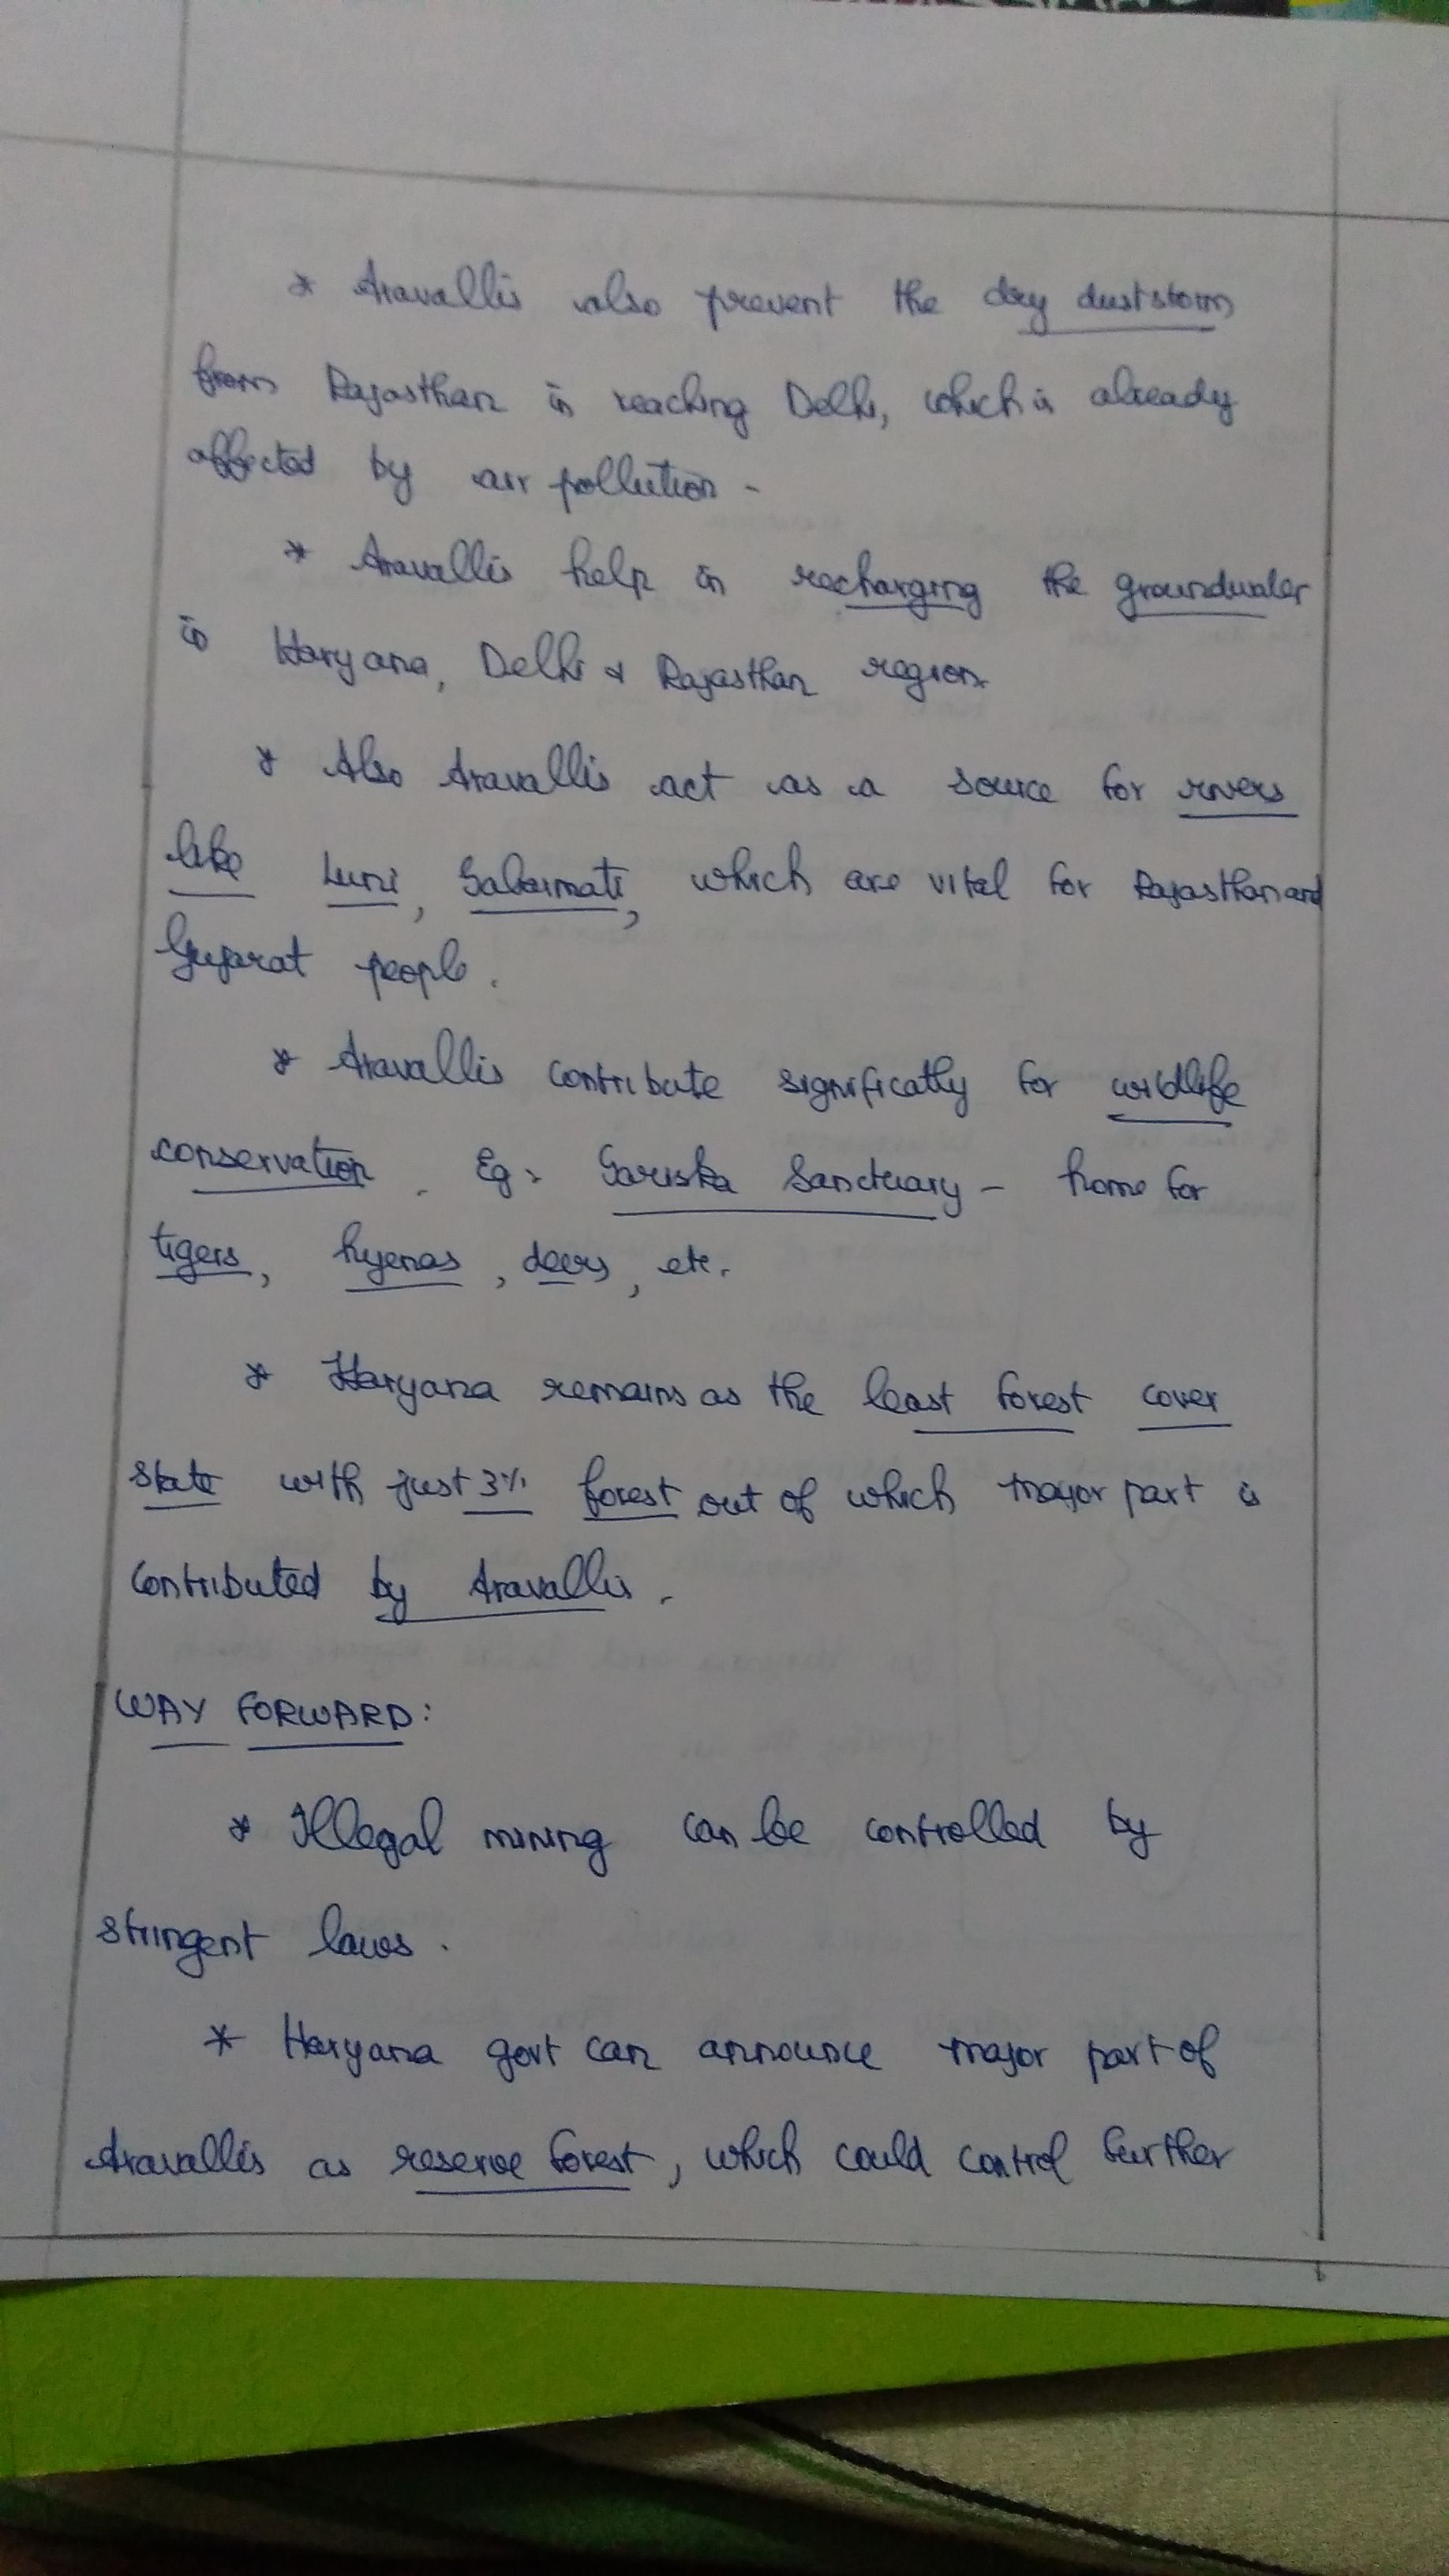 * Aravallis also prevent the dry duststorm
from Rajasthan in reaching Delhi, which is already
affected by air pollution.
* Aravallis help in recharging the groundwater
in Haryana, Delhi & Rajasthan region
* Also Aravallis act as a source for rivers
like Luni, Sabarmati, which are vital for Rajasthan and
Gujarat people.
* Aravallis contribute significatly for wildlife
conservation. Eg: Sariska Sanctuary - home for
tigers, hyenas, deers, etc.
* Haryana remains as the least forest cover
state with just 3% forest out of which major part is
contributed by Aravallis.
WAY FORWARD:
* Illegal mining can be controlled by
stringent laws.
* Haryana govt can announce major part of
Aravallis as reserve forest, which could control further